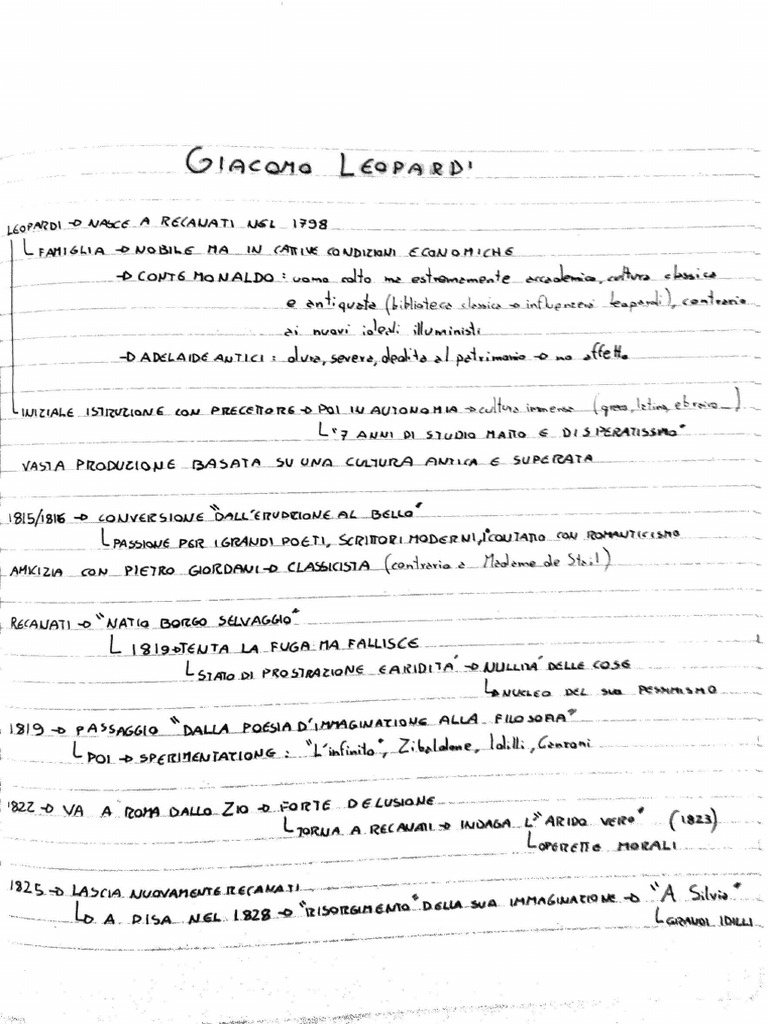 GIACOMO LEOPARDI
LEOPARDI → NASCE A RECANATI NEL 1798
FAMIGLIA → NOBILE MA IN CATTIVE CONDIZIONI ECONOMICHE
→ CONTE MONALDO: uomo colto ma estremamente accademico, cultura classica
e antiquata (biblioteca classica → influenzerà Leopardi), contrario
ai nuovi ideali illuministi
→ ADELAIDE ANTICI: dura, severa, dedita al patrimonio → no affetto
INIZIALE ISTRUZIONE CON PRECETTORE → POI IN AUTONOMIA → cultura immensa (greco, latino, ebraico...)
"7 ANNI DI STUDIO MATTO E DISPERATISSIMO"
VASTA PRODUZIONE BASATA SU UNA CULTURA ANTICA E SUPERATA
1815/1816 → CONVERSIONE "DALL'ERUDIZIONE AL BELLO"
PASSIONE PER I GRANDI POETI, SCRITTORI MODERNI, 1° CONTATTO CON ROMANTICISMO
AMICIZIA CON PIETRO GIORDANI → CLASSICISTA (contrario a Madame de Stäel)
RECANATI → "NATIO BORGO SELVAGGIO"
1819 → TENTA LA FUGA MA FALLISCE
STATO DI PROSTRAZIONE E ARIDITÀ → NULLITÀ DELLE COSE
NUCLEO DEL SUO PESSIMISMO
1819 → PASSAGGIO "DALLA POESIA D'IMMAGINATIONE ALLA FILOSOFIA"
POI → SPERIMENTATIONE: "L'infinito", Zibaldone, Idilli, Canzoni
1822 → VA A ROMA DALLO ZIO → FORTE DELUSIONE
TORNA A RECANATI → INDAGA L'"ARIDO VERO" (1823)
OPERETTE MORALI
1825 → LASCIA NUOVAMENTE RECANATI
→ A PISA NEL 1828 → "RISORGIMENTO" DELLA SUA IMMAGINAZIONE → "A Silvia"
GRANDI IDILLI